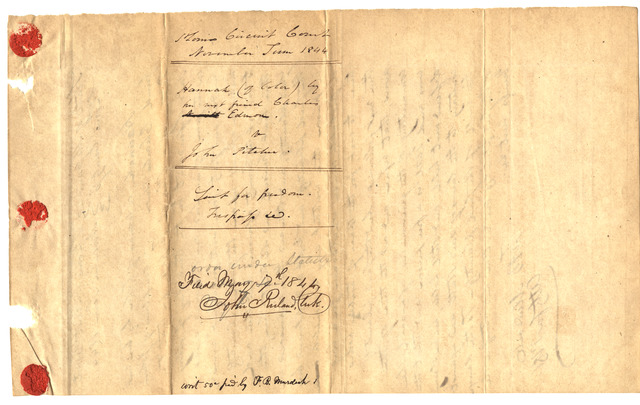 St Louis Circuit Court
November Term 1844
Hannah (of Color) by
her next friend Charles
Edmon.
v
John Pitcher.
Suit for freedom.
Trespass &c.
order under Statute
Filed 1844
John Ruland, Clerk.
writ pd by F. B. Murdoch